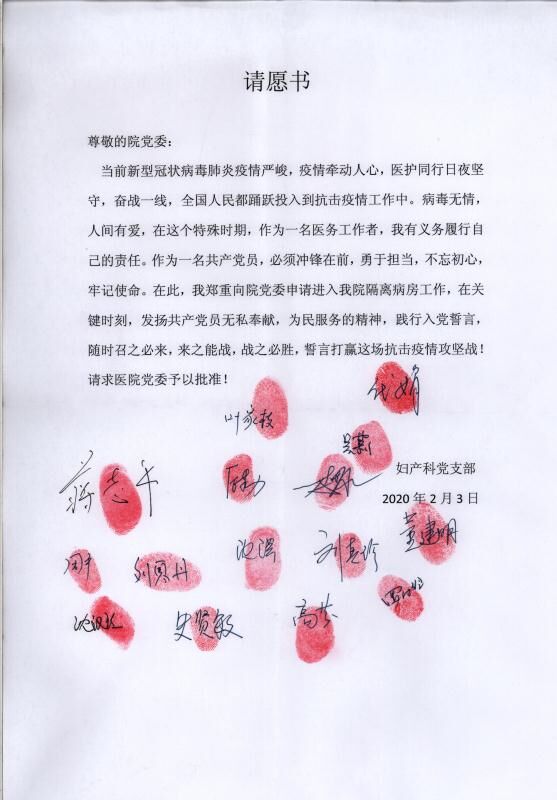 请愿书
尊敬的院党委：
当前新型冠状病毒肺炎疫情严峻，疫情牵动人心，医护同行日夜坚
守，奋战一线，全国人民都踊跃投入到抗击疫情工作中。病毒无情，
人间有爱，在这个特殊时期，作为一名医务工作者，我有义务履行自
己的责任。作为一名共产党员，必须冲锋在前，勇于担当，不忘初心，
牢记使命。在此，我郑重向院党委申请进入我院隔离病房工作，在关
键时刻，发扬共产党员无私奉献，为民服务的精神，践行入党誓言，
随时召之必来，来之能战，战之必胜，誓言打赢这场抗击疫情攻坚战！
请求医院党委予以批准！
妇产科党支部
2020 年 2 月 3 日
董建明
史贤敏